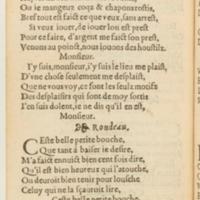 Ou ie mangeux coqz & chaponarostis,
Bref tout est faict ce que veux, sans arrest,
Si veux iouer, de iouer lon est prest
Pour ce faire, d'argent me faict son prest,
Venons au poinct, nous iouons des houstilz.
Monsieur.
I'y suis, monsieur, i'y suis le lieu me plaist,
D'une chose seulement me desplaist,
Que ne vous voy, ce sont les seulz motifz
Des desplaisirs qui sont de moy sortis
I'en suis dolent, ie ne dis qu'il en est,
Monsieur.
Rondeau.
CEste belle petite bouche,
Que tant a baiser ie desire,
M'a faict ennuict bien cent fois dire,
Qu'il est bien heureux qui l'atouche,
On deuroit bien tenir pour lousche
Celuy qui ne la sçauroit lire,
Ceste belle petite bouche.